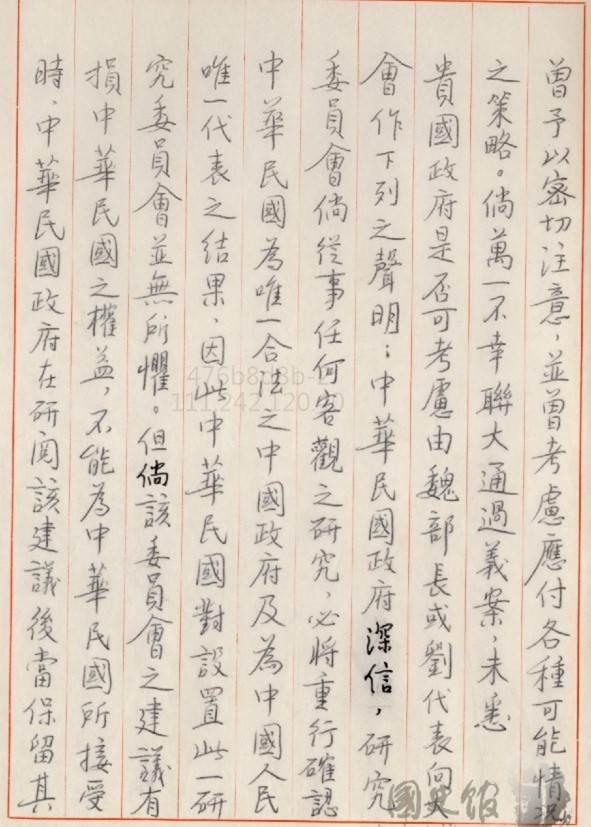 曾予以密切注意，並曾考慮應付各種可能情況
之策略。倘萬一不幸聯大通過義案，未悉
貴國政府是否可考慮由魏部長或劉代表向大
會作下列之聲明：中華民國政府深信，研究
委員會倘從事任何客觀之研究，必將重行確認
中華民國為唯一合法之中國政府及為中國人民
唯一代表之結果，因此中華民國對設置此一研
究委員會並無所懼。但倘該委員會之建議有
損中華民國之權益，不能為中華民國所接受
時，中華民國政府在研閱該建議後當保留其
476b8d8b-2
111.242.120.20
國史館